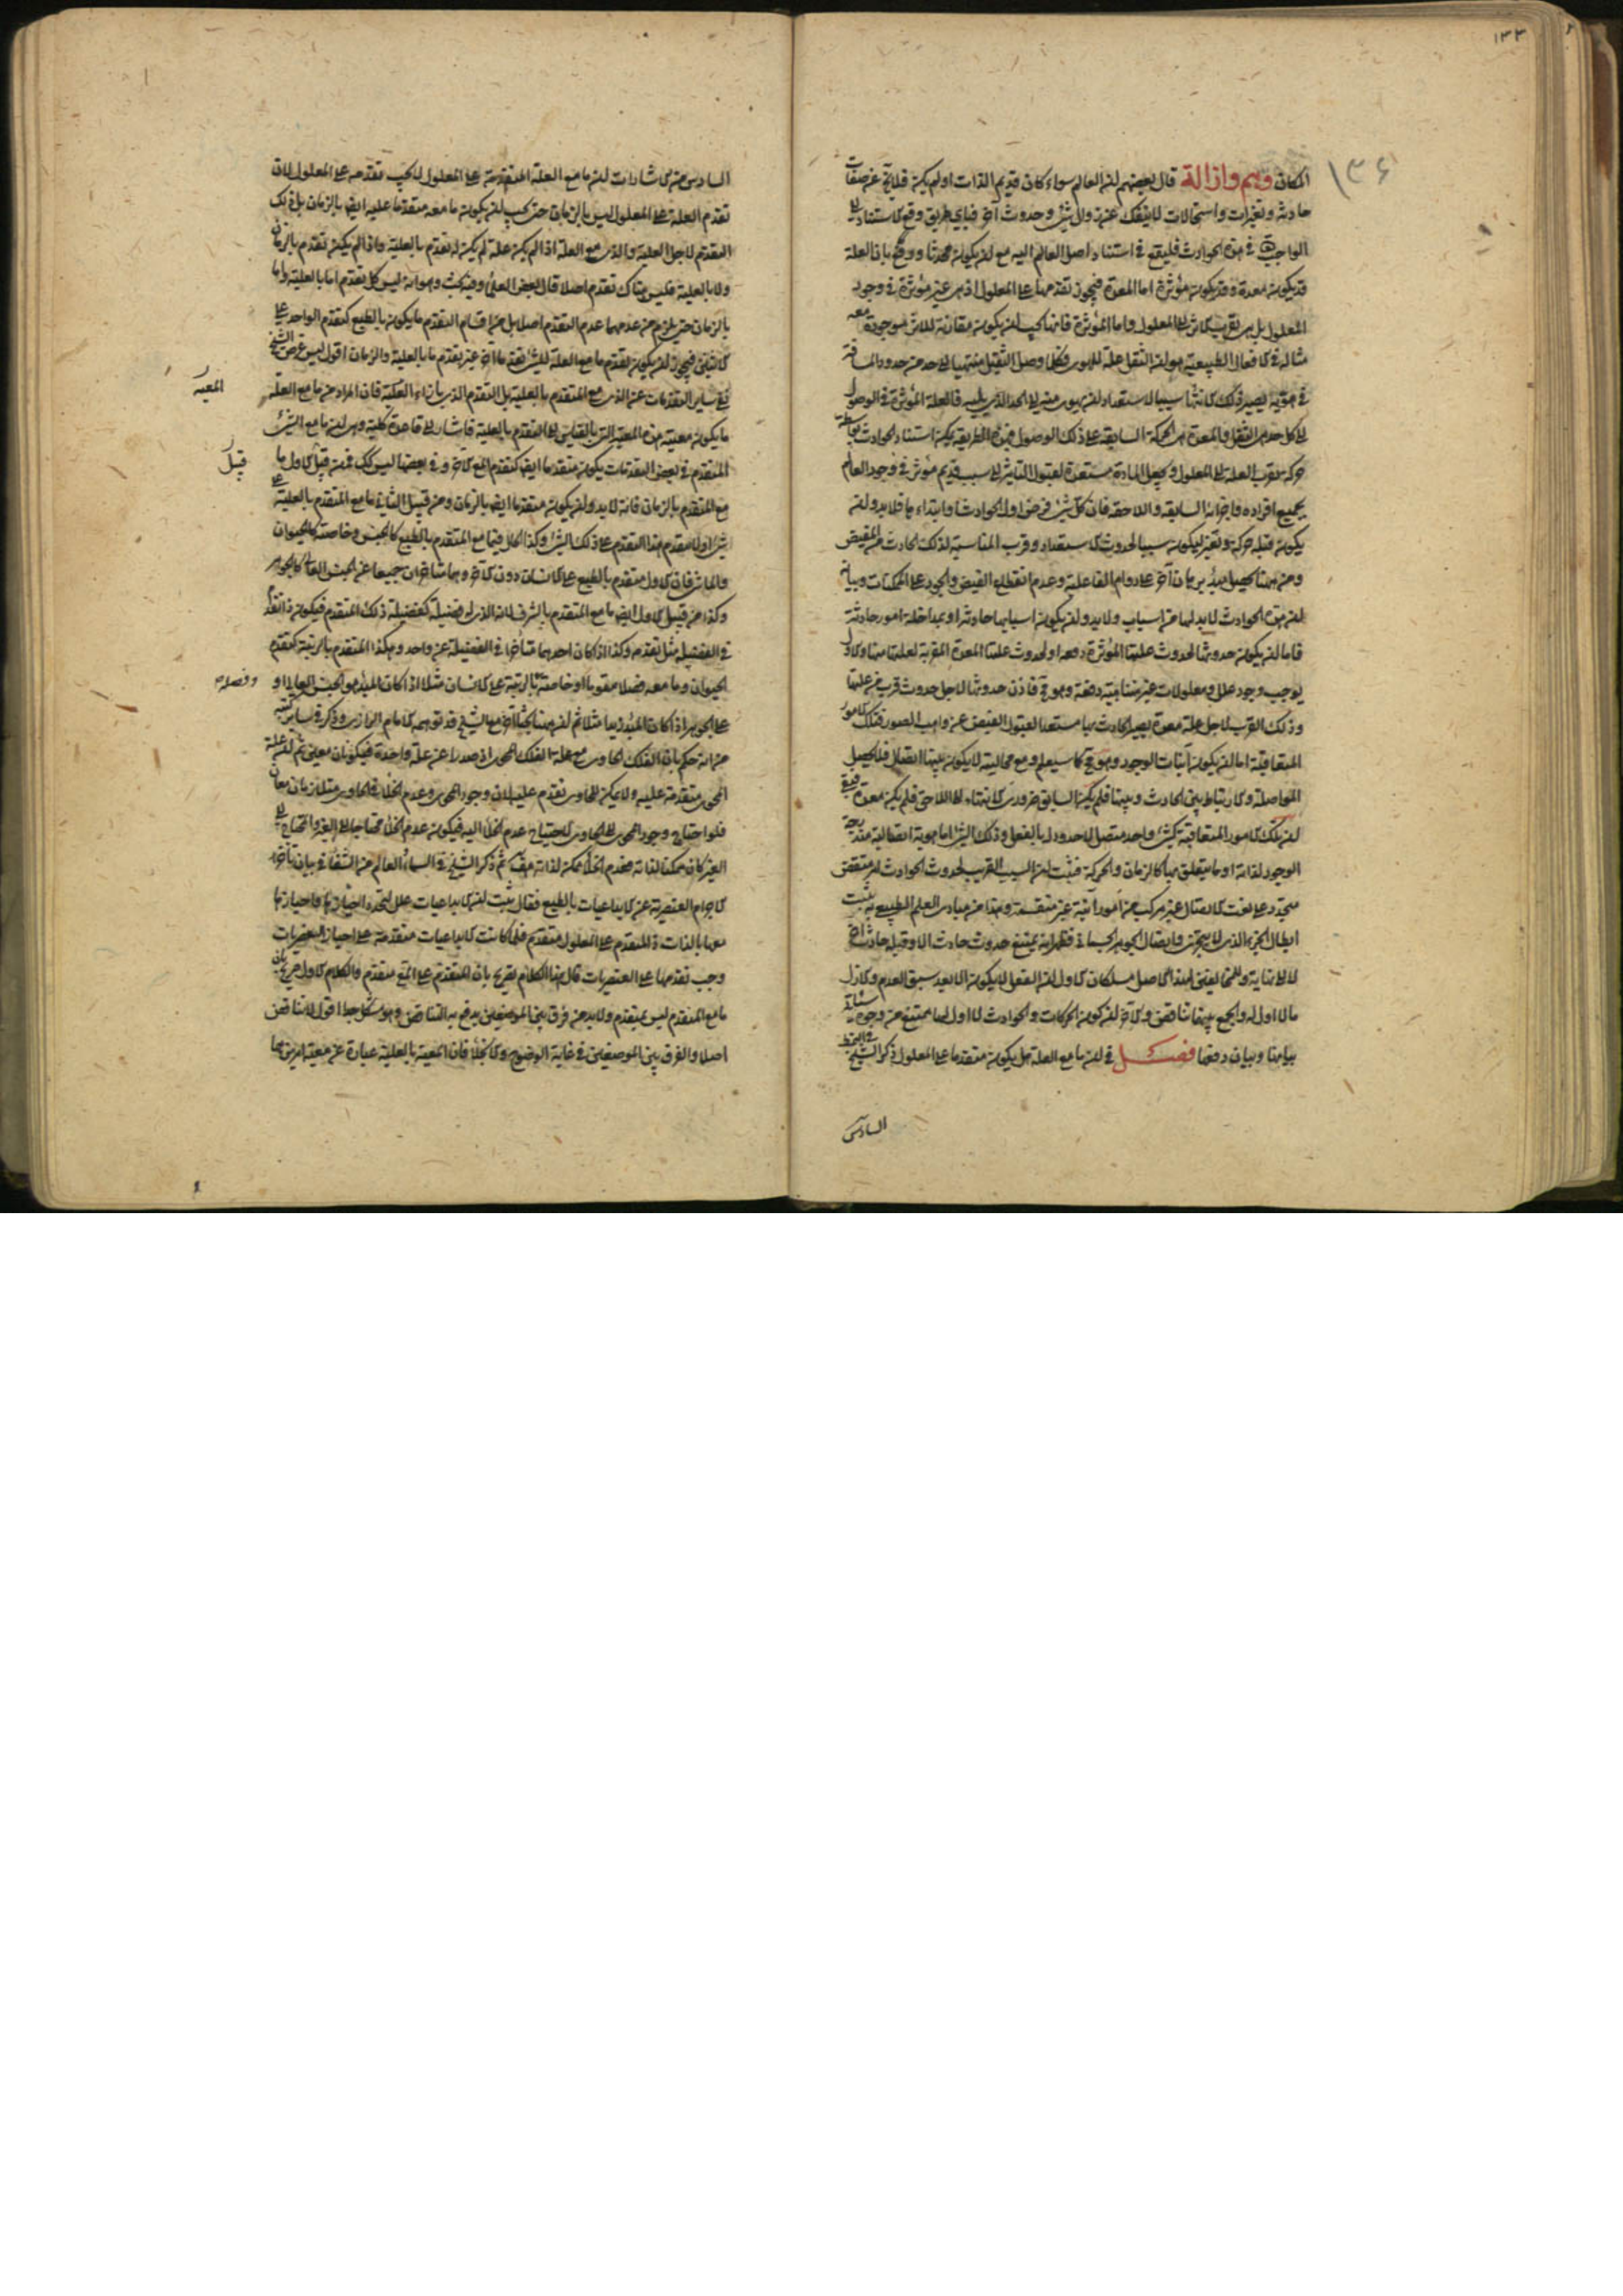 ١٣٣
١٣٤
المكان وهم وازالة قال بعضهم ان العالم سواء كان قديم الذات او لم يكن فلا يخ عن صفات
حادثة وتغيرات واستحالات لا ينفك عن زوال شئ وحدوث آخر فباي طريق وقع الاستناد الى
الواجب تع في هذه الحوادث فليقع في استناد اصل العالم اليه مع ان يكون محدثا ووقع بان العلة
قد يكون معدة وقد يكون مؤثرة اما المعدة فيجوز تقدمها على المعلول اذ هي غير مؤثرة في وجود
المعلول بل هي تقرب الاثر الى المعلول واما المؤثرة فانها يجب ان يكون مقارنة للاثر موجودة معه
مثاله في الافعال الطبيعية هو ان الثقل علة للهوى فكلما وصل الثقيل منتهيا الى حد من حدود المسافة
في هويه يصير ذلك الانتهاء سببا لاستعداد ان يهوى منه الى الحد الذي يليه فالعلة المؤثرة في الوصول
الى كل حد هي الثقل والمعدة هي الحركة السابقة على ذلك الوصول فبهذه الطريقة يمكن استناد الحوادث بواسطة
حركة تقرب العلة الى المعلول ويجعل المادة مستعدة لقبول التاثير الى سبب قديم مؤثر في وجود العالم
بجميع افراده واجزائه السابقة واللاحقة فان كل شئ فرض اول الحوادث وابتداءها فلا بد وان
يكون قبله حركة وتغير ليكون سببا لحدوث الاستعداد وقرب المناسبة لذلك الحادث من المفيض
ومن ههنا يحصل برهان آخر على دوام الفاعلية وعدم انقطاع الفيض والجود على الممكنات وبيانه
ان هذه الحوادث لا بد لها من اسباب ولا بد وان يكون اسبابها حادثة او بمداخلة امور حادثة
فاما ان يكون حدوثها لحدوث علتها المؤثرة دفعة او لحدوث علتها المعدة المقربة لعلتها منها والاول
يوجب وجود علل ومعلولات غير متناهية دفعة وهو مح فاذن حدوثها لاجل حدوث قرب من علتها
وذلك القرب لاجل علة معدة يصير الحادث بها مستعدا لقبول الفيض عن واهب الصور فتلك الامور
المتعاقبة اما ان يكون آنيات الوجود وهو مح كما سيعلم ومع محاليته لا يكون بينها اتصال فلا يحصل
المواصلة والارتباط بين الحادث وبينها فلم يكن السابق ضروري الانتهاء الى اللاحق فلم يكن معدة فبقى
ان تلك الامور المتعاقبة كشئ واحد متصل لا حدود له بالفعل وذلك الشئ اما هوية اتصالية متدرجة
الوجود لذاته او ما يتعلق بها كالزمان والحركة فثبت ان السبب القريب لحدوث الحوادث امر متقض
متجدد على نعت الاتصال غير مركب من امور آنية غير منقسمة وهذا من مبادي العلم الطبيعي به يثبت
ابطال الجزء الذي لا يتجزى واتصال الجوهر الجسماني فظهر انه يمتنع حدوث حادث الا وقبله حادث آخر
لا الى نهاية وللمخالفين لهذا الاصل مسلكان الاول ان الفعل لا يكون الا بعد سبق العدم والازل
ما لا اول له والجمع بينهما تناقض والآخر ان كون الحركات والحوادث لا اول لها يمتنع من وجوه سيأتي
بيانها وبيان دفعها فصل في ان ما مع العلة هل يكون متقدما على المعلول ذكر الشيخ في النمط
السادس
السادس من الاشارات ان ما مع العلة المتقدمة على المعلول لا يجب تقدمه على المعلول لان
تقدم العلة على المعلول ليس بالزمان حتى يجب ان يكون ما معه متقدما عليه ايض بالزمان بل ذلك
التقدم لاجل العلية والذي مع العلة اذا لم يكن علة لم يكن له تقدم بالعلية واذا لم يكن تقدم بالزمان
ولا بالعلية فليس هناك تقدم اصلا قال بعض العلماء وفيه بحث وهو انه ليس كل تقدم اما بالعلية واما
بالزمان حتى يلزم من عدمهما عدم التقدم اصلا بل من اقسام التقدم ما يكون بالطبع كتقدم الواحد على
الاثنين فيجوز ان يكون لتقدم ما مع العلة للشئ تقدما آخر غير تقدم ما بالعلية والزمان اقول ليس غرض الشيخ
نفي ساير التقدمات عن الذي مع المتقدم بالعلية بل التقدم الذي بازاء العلية فان المراد من ما مع العلة
ما يكون معيته هذه المعية التي بالقياس الى المتقدم بالعلية فاشار الى قاعدة كلية وهي ان ما مع الشئ
المعية
المتقدم في بعض التقدمات يكون متقدما ايض كتقدم المع الآخر وفي بعضها ليس كك فمن قبيل الاول ما
قبيل
مع المتقدم بالزمان فانه لا بد وان يكون متقدما ايض بالزمان ومن قبيل الثاني ما مع المتقدم بالعلية على
شئ او لا متقدم هذا التقدم على ذلك الشئ وكذا الحال فيما مع المتقدم بالطبع كالجنس وخاصته كالحيوان
والماشي فان الاول متقدم بالطبع على الانسان دون الآخر وهما متاخران جميعا عن الجنس العالي كالجوهر
وكذا من قبيل الاول ايض ما مع المتقدم بالشرف لان الذي له فضيلة كفضيلة ذلك المتقدم فيكون ذا تقدم
في الفضيلة مثل تقدمه وكذا اذا كان احدهما متأخرا في الفضيلة عن واحد وهكذا المتقدم بالرتبة كتقدم
الحيوان وما معه فضلا مقوما او خاصة بالرتبة على الانسان مثلا اذا كان المبدء هو الجنس العالي او
وفصله
على الجوهر اذا كان المبدء زيدا مثلا ثم ان ههنا بحثا آخر مع الشيخ قد توهمه الامام الرازي وذكر في ساير كتبه
من انه حكم بان الفلك الحاوي مع علة الفلك المحوى اذ صدرا عن علة واحدة فيكونان معين ثم ان علة
المحوى متقدمة عليه ولا يمكن للحاوي تقدم عليه لان وجود المحوى وعدم الخلأ في الحاوي متلازمان معا
فلو احتاج وجود المحوى الى الحاوي لاحتياج عدم الخلأ اليه فيكون عدم الخلأ محتاجا الى الغير والمحتاج الى
الغير كان ممكنا لذاته فعدم الخلأ ممكن لذاته هف ثم ذكر الشيخ في السماء والعالم من الشفا في بيان تأخر
الاجرام العنصرية عن الابداعيات بالطبع فقال ثبت ان الابداعيات علل لتحدد احيازها واحيازها
معها بالذات والمتقدم على المعلول متقدم فلما كانت الابداعيات متقدمة على احياز العنصريات
وجب تقدمها على العنصريات قال هذا الكلام تصريح بان المتقدم على المع متقدم والكلام الاول صريح بان
ما مع المتقدم ليس بمتقدم ولا بد من فرق بين الموضعين يدفع به التناقض وهو مشكل جدا اقول لا تناقض
اصلا والفرق بين الموضعين في غاية الوضوح والانجلاء فان المعية بالعلية عبارة عن معية امرين هما